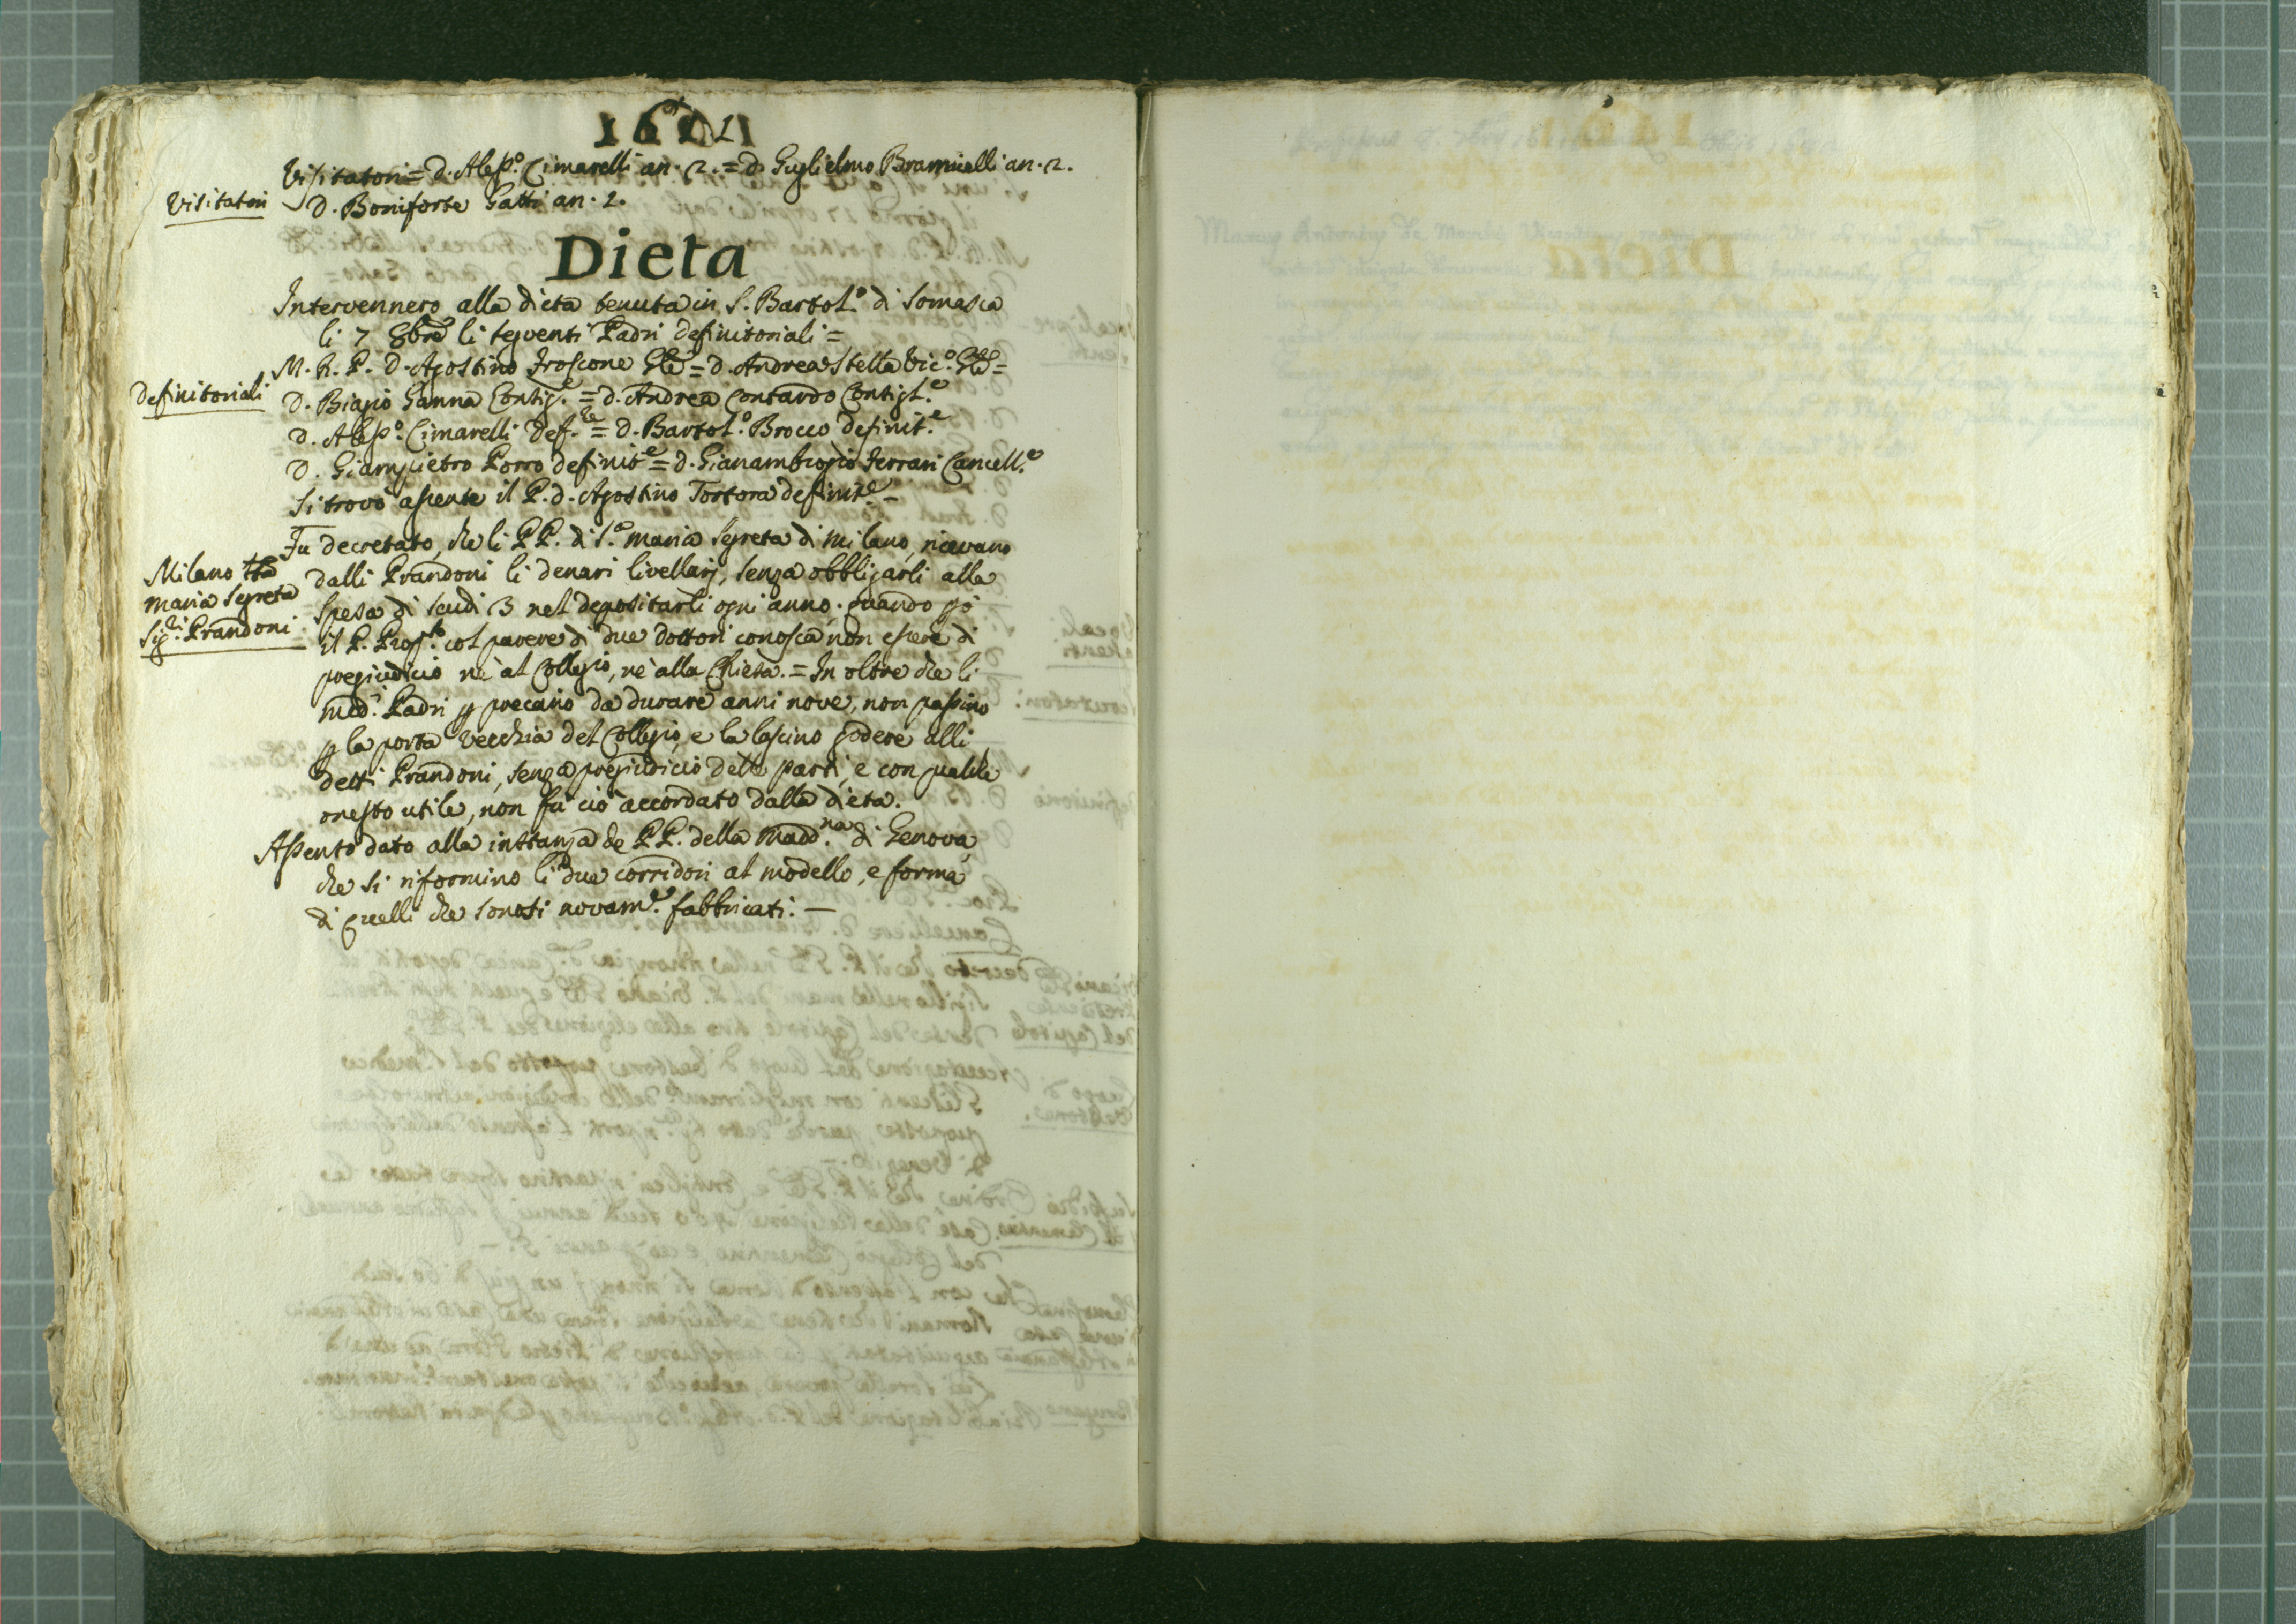 Visitatori = d. Aless.º Cimarelli an. 2. = d. Guglielmo Bramicelli an. 2.
Visitatori
D. Boniforte Gatti an. 2.
Dieta
Intervennero alla dieta tenuta in S. Bartol.º di Somasca
li 7 8bre li seguenti Padri definitoriali =
Definitoriali
M. R. P. D. Agostino Froscone Gle = d. Andrea Stella Vic.º Gle =
D. Biagio Ganna Consig.e = d. Andrea Contardo Consigl.e
D. Aless.º Cimarelli def.re = D. Bartol.º Brocco definit.e
D. Giampietro Porro definit.e = d. Gianambrogio Ferrari Cancell.e
Si trovò assente il P. d. Agostino Tortora definit.e –
Milano Sta
Maria Segreta
Sig.ri Prandoni
Fu decretato, che li PP. di S.ª Maria Segreta di Milano, ricevano
dalli Prandoni li denari livellarj, senza obbligarli alla
spesa di scudi 3 nel depositarli ogni anno, quando pò
il P. Prop.to col parere di due dottori conosca, non essere di
pregiudicio nè al Collegio, nè alla Chiesa. = In oltre che li
med.i Padri p precario da durare anni nove, non passino
p la porta vecchia del Collegio, e la lascino godere alli
detti Prandoni, senza pregiudicio delle parti, e con qualche
onesto utile, non fu ciò accordato dalla dieta.
Assento dato alla instanza de PP. della Madd.na di Genova,
che si riformino li due corridori al modello, e forma
di quelli che sonosi novam.e fabbricati. –